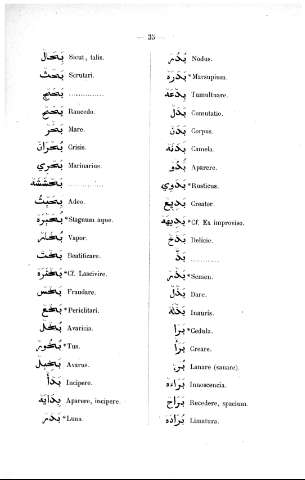 — 35 —
بَحَال Sicut, talis.
بَحَث Scrutari.
..............
بَحَح Raucedo.
بَحَر Mare.
بُحْرَان Crisis.
بَحْرِي Marinarius.
..............
بَحَيْثُ Adeo.
بُحَيْرَة *Stagnum aque.
بُخَار Vapor.
بَخَت Beatificare.
*Cf. Lascivire.
بَخَس Fraudare.
بَخَع *Periclitari.
بُخْل Avaricia.
بَخُور *Tus.
بَخِيل Avarus.
بَدَأ Incipere.
بِدَايَة Aparere, incipere.
بَدَر *Luna.
Nodus.
بَدْرَة *Marsupium.
بِدْعَة Tumultuare.
بَدَل Comutatio.
بَدَن Corpus.
بَدَنَة Camela.
بَدُو Aparere.
بَدَوِي *Rusticus.
بَدِيع Creator.
بَدِيهَة *Cf. Ex improviso.
بَذَخ Delicie.
بَذّ ...........
بَذَر *Semen.
بَذَل Dare.
بَذْلَة Inauris.
بَرَا *Gedula.
بَرَأ Creare.
Lanare (sanare).
بَرَاءة Innoscencia.
بَرَاح Recedere, spacium.
بُرَادَة Limatura.